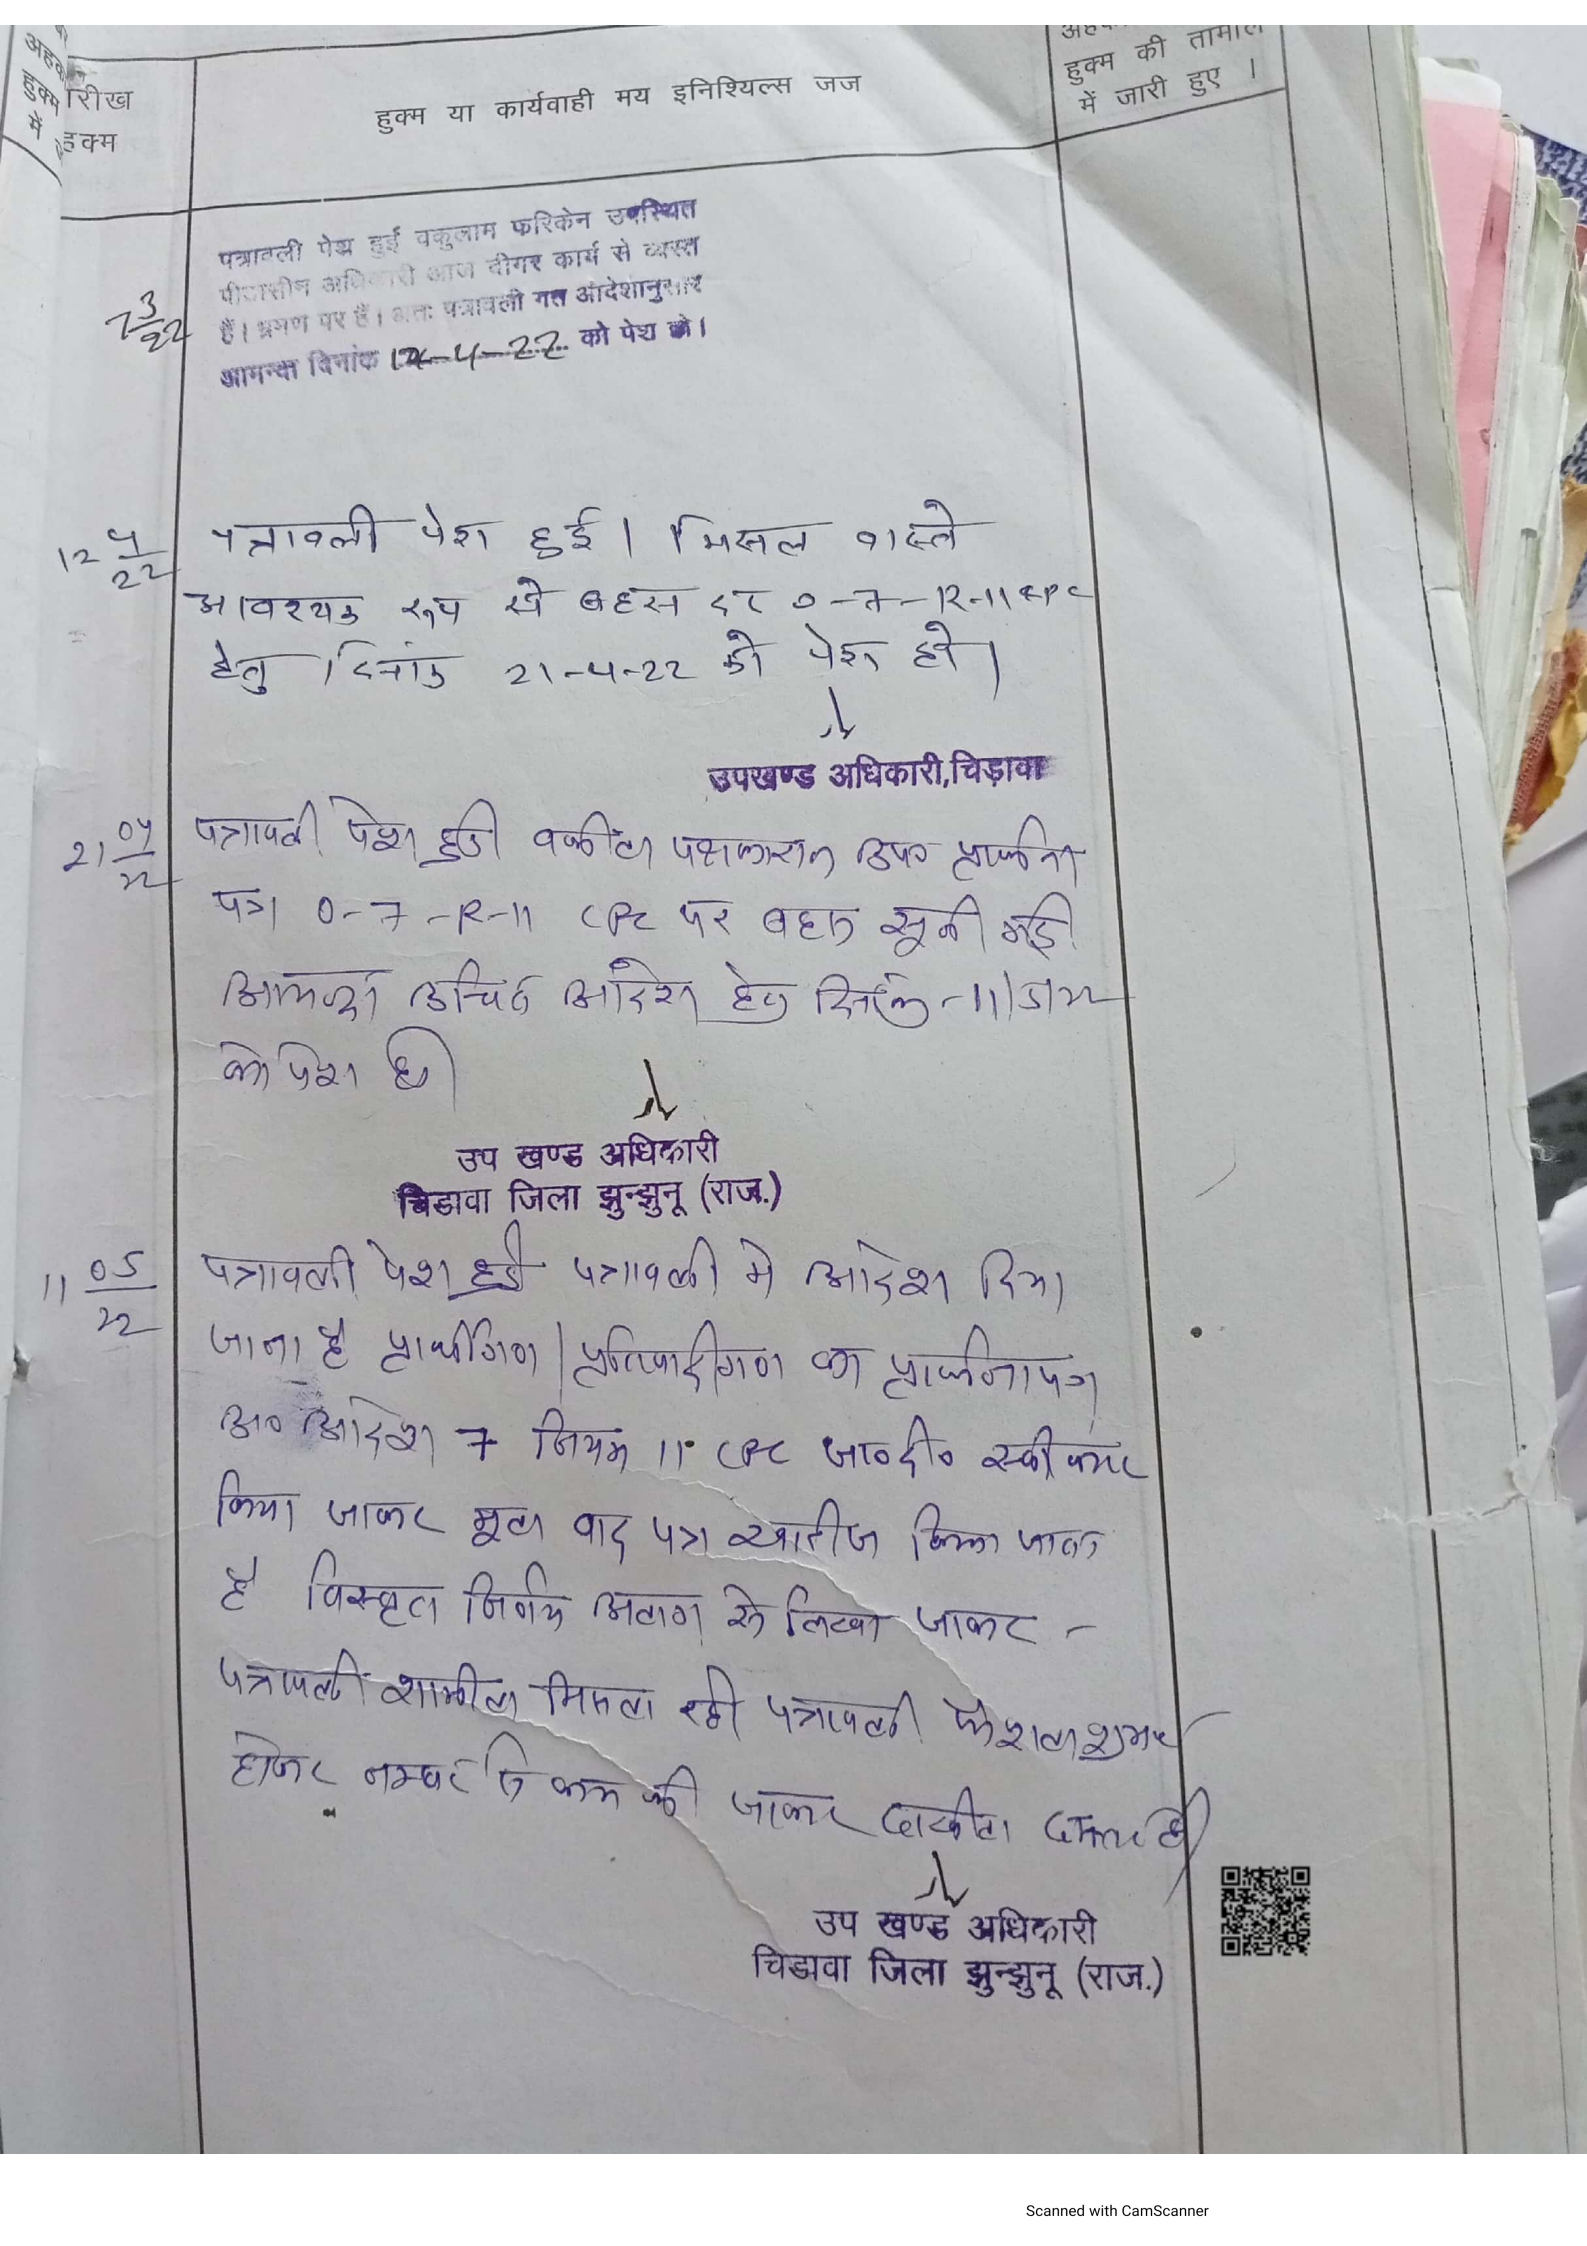 अहक
हुक्म
में
तारीख
हुक्म
हुक्म या कार्यवाही मय इनिश्यिल्स जज
हुक्म की तामील
में जारी हुए ।
पत्रावली पेश हुई वकुलाम फरिकेन उपस्थित
पीठासीन अधिकारी आज दीगर कार्य से व्यस्त
हैं। भ्रमण पर हैं। अतः पत्रावली गत आदेशानुसार
आमन्दा दिनांक 12-4-22 को पेश हो।
7 3/22
12 4/22
पत्रावली पेश हुई । मिसल वास्ते
आवश्यक रूप से बहस दर 0-7-R-11 CPC
हेतु दिनांक 21-4-22 को पेश हो।
उपखण्ड अधिकारी,चिड़ावा
21 04/22
पत्रावली पेश हुई वकील पक्षकारान उप० प्रार्थना
पत्र 0-7-R-11 CPC पर बहस सूनी गई
आमन्दा उचित आदेश हेतु दिनांक 11/5/22
को पेश हो
उप खण्ड अधिकारी
चिडावा जिला झुन्झुनू (राज.)
11 05/22
पत्रावली पेश हुई पत्रावली मे आदेश दिया
जाता है प्रार्थीगण/प्रतिवादीगण का प्रार्थनापत्र
अ० आदेश 7 नियम 11 CPC जा०दी० स्वीकार
किया जाकर मूल वाद पत्र खारीज किया जाता
है विस्तृत निर्णय अलग से लिखा जाकर -
पत्रावली शामील मिसल रही पत्रावली फैशल शुमार
होकर नम्बर से कम की जाकर दाखील दफ्तर हो
उप खण्ड अधिकारी
चिडावा जिला झुन्झुनू (राज.)
Scanned with CamScanner